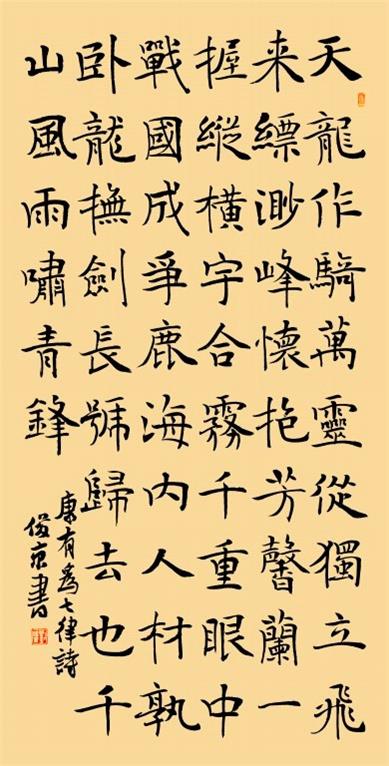 天龍作騎萬靈從獨立飛
来縹渺峰懷抱芳馨蘭一
握縱橫宇合霧千重眼中
戰國成爭鹿海內人材孰
卧龍撫劍長號歸去也千
山風雨嘯青鋒
康有爲七律詩
俊書